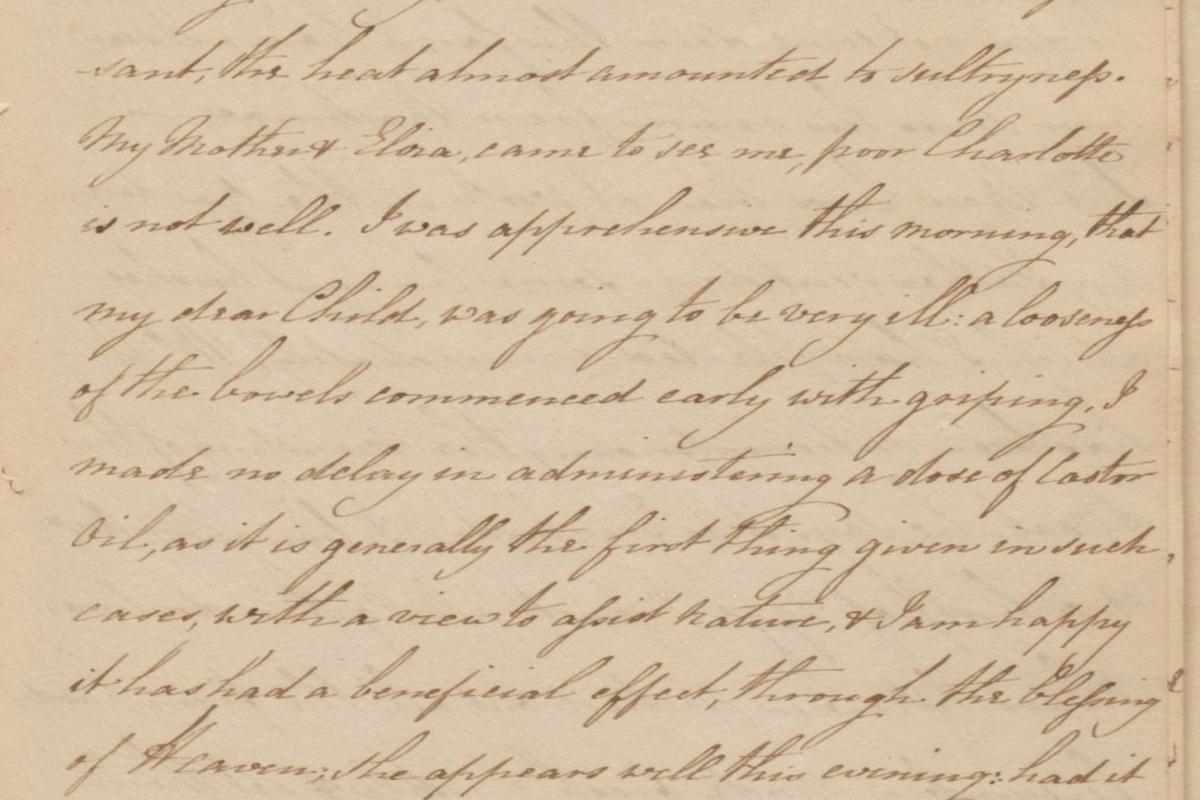 sant, the heat almost amounted to sultryness.
My Mother & Eliza, came to see me, poor Charlotte
is not well. I was apprehensive this morning, that
my dear Child, was going to be very ill: a looseness
of the bowels commenced early with griping, I
made no delay in administering a dose of Castor
Oil, as it is generally the first thing given in such
cases, with a view to assist Nature, & I am happy
it has had a beneficial effect, through the blessing
of Heaven; she appears well this evening: had it